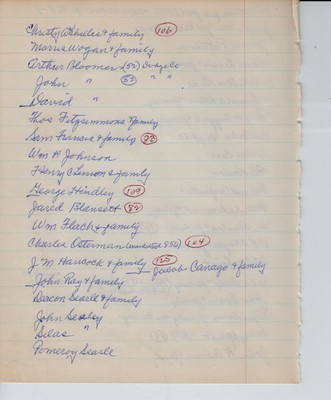 Christy Wheeler & family (106)
Morris Wogan & family
Arthur Bloomer (56) Dodge Co
John " (55) " "
David "
Thos Fitzsimmons & family
Sam Francis & family (22)
Wm A Johnson
Henry Lemon & family
George Hindley (109)
Jared Blansett (82)
Wm Flach & family
Charles Osterman (unmarried 856) (104)
J. M Hancock & family (125)
Jacob Canago & family
John Ray & family
Deacon Searle & family
John Sealey
Silas "
Pomeroy Searle